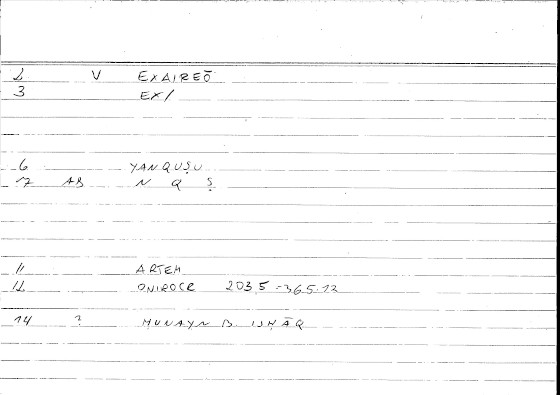 2 V EXAIREŌ
3 EX/
6 YANQUṢU
17 AB N Q Ṣ
11 ARTEM
12 ONIROCR 203.5-365.12
14 ? ḤUNAYN B. ISḤĀQ